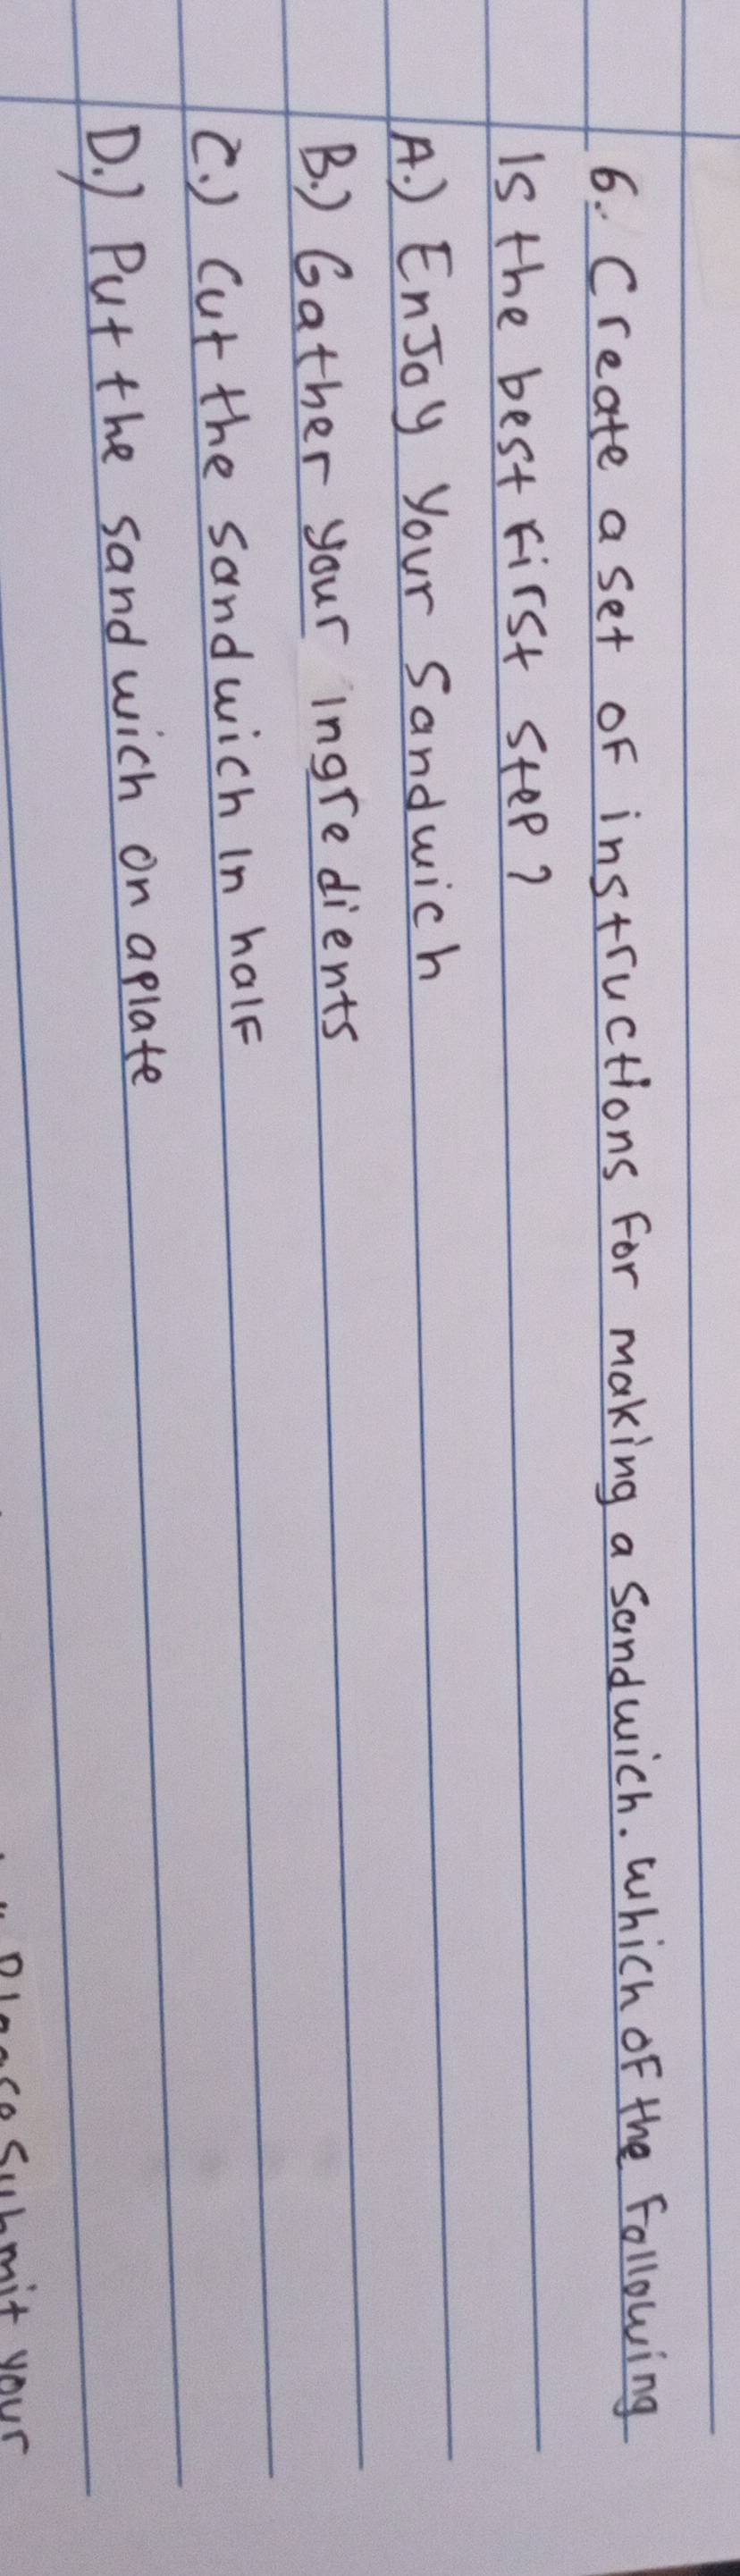 6. Create a set of instructions for making a sandwich. Which of the following
Is the best first step?
A.) Enjoy your sandwich
B.) Gather your ingredients
C.) Cut the sandwich in half
D.) Put the sandwich on a plate
Please submit your